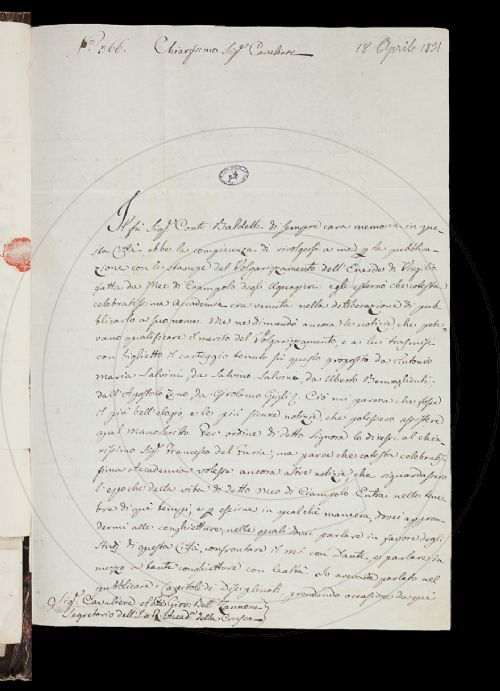 N.º 366. Chiarissimo Sig.r Cavaliere
18 Aprile 1831
Il fu Sig.r Conte Baldelli di sempre cara memoria in que-
sta Città ebbe la compiacenza di rivolgersi a me p la pubblica-
zione con le stampe del Volgarizzamento dell'Eneide di Virgilio
fatta da Meo di Ciampolo degli Ugurgeri. egli esternò che cotesta
celebratissima Accademia era venuta nella deliberazione di pub-
blicarlo a suo nome. Me ne dimandò ancora le notizie, che pote-
vano qualificare il merito del Volgarizzamento, e a lui trasmisi
con biglietto il carteggio tenuto su questo proposto da Antonio
Maria Salvini, da Salvino Salvini, da Uberto Benvoglienti,
dall'Apostolo Zeno, da Girolamo Gigli. Ciò mi pareva che fosse
il più bell'elogio, e le più sicure notizie, che potessero assistere
quel manoscritto. Per ordine di detto Signore lo diressi al chia-
rissimo Sig.r Francesco del Furia, ma parve che cotesta celebratis-
sima Accademia volesse ancora altre notizie, che riguardassero
l'epoche della vita di detto Meo di Ciampolo. Entrai nelle tene-
bre di quei tempi, e p escirne in qualche maniera, dovei appren-
dermi alle conghietture, nelle quali dovei parlare in favore degli
studj di questa Città, confrontare il mś con Dante, e parlare in
mezzo a tante conghietture con lealtà. Io aveva parlato nel
pubblicare i Capitoli dei Disciplinati, prendendo occasione da qui
Sig.r Cavaliere Abate Gio: Bat. Zannoni
Segretario dell'I. e R. Accad.a della Crusca